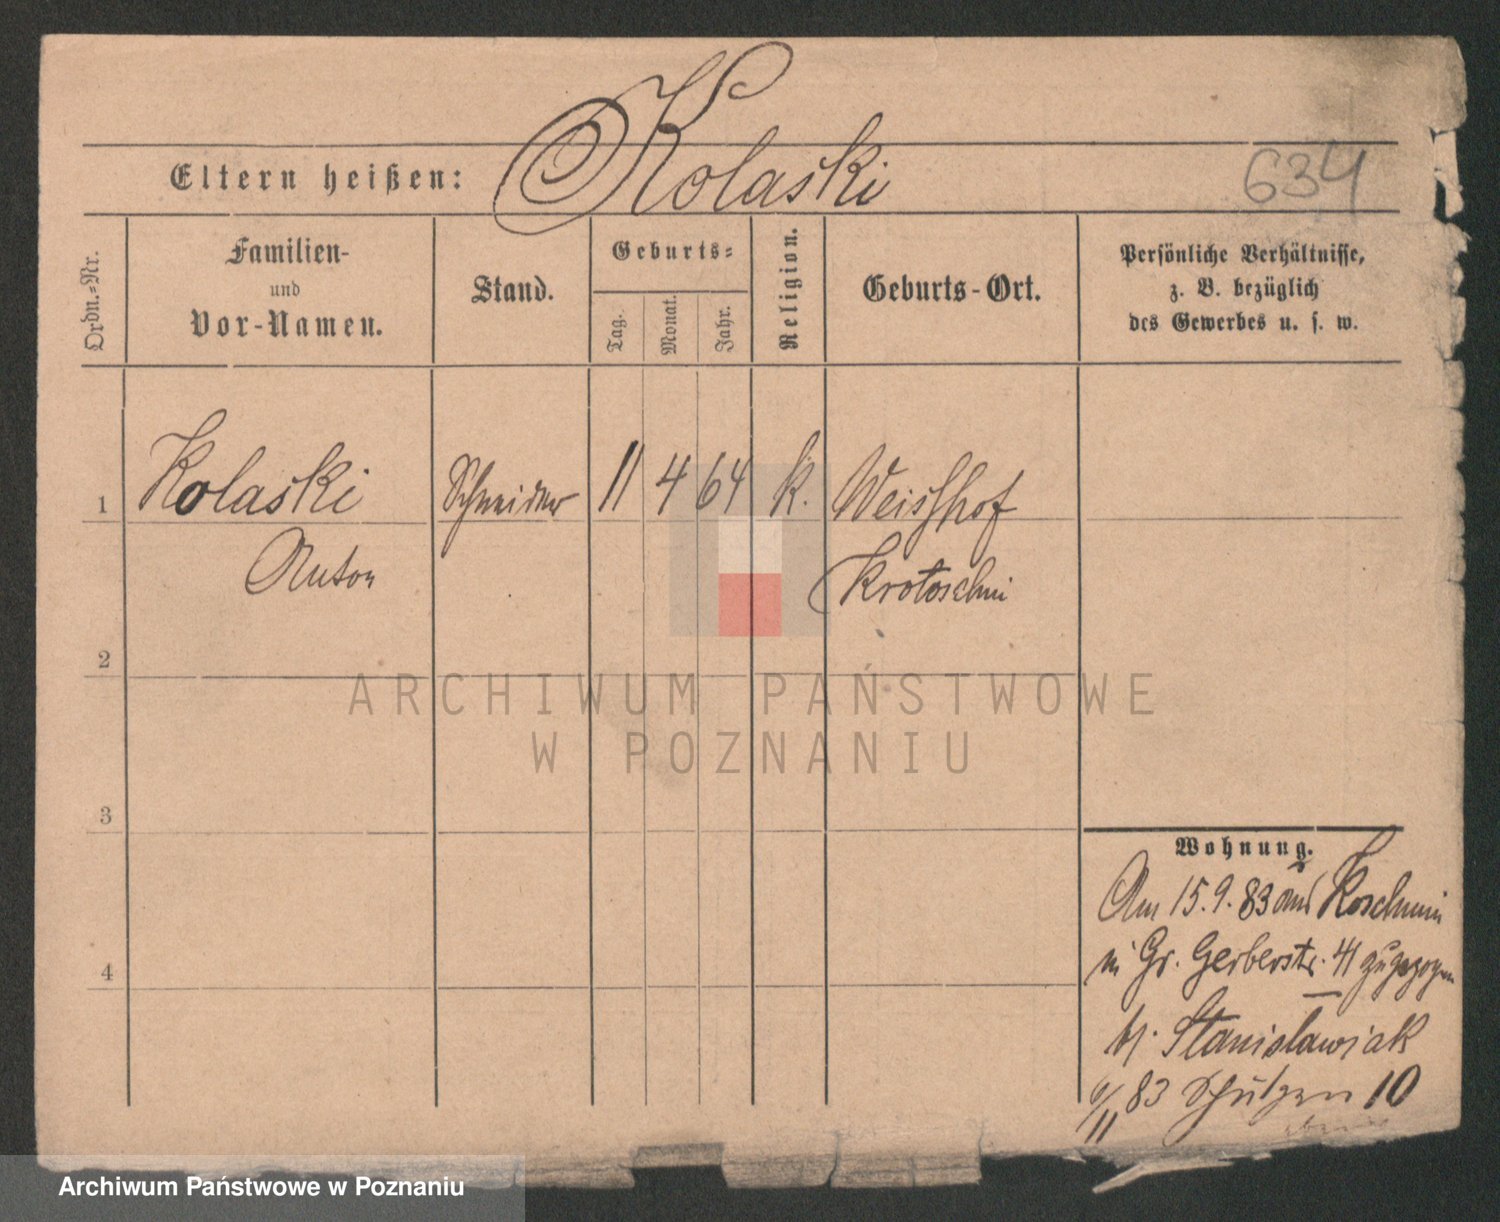 Kolaski
Eltern heißen:
634
Ordn.-Nr.
Familien-
und
Vor-Namen.
Stand.
Geburts-
Tag.
Monat.
Jahr.
Religion.
Geburts-Ort.
Persönliche Verhältnisse,
z. B. bezüglich
des Gewerbes u. s. w.
1 Kolaski Schneider 11 4 64 k. Weisshof
Anton Krotoschin
2
3
4
Wohnung.
Am 15.9.83 aus Koschmin
in Gr. Gerberstr. 41 zugezogen
b. Stanislawiak
/11 83 Schützen 10
ARCHIWUM PAŃSTWOWE
W POZNANIU
Archiwum Państwowe w Poznaniu